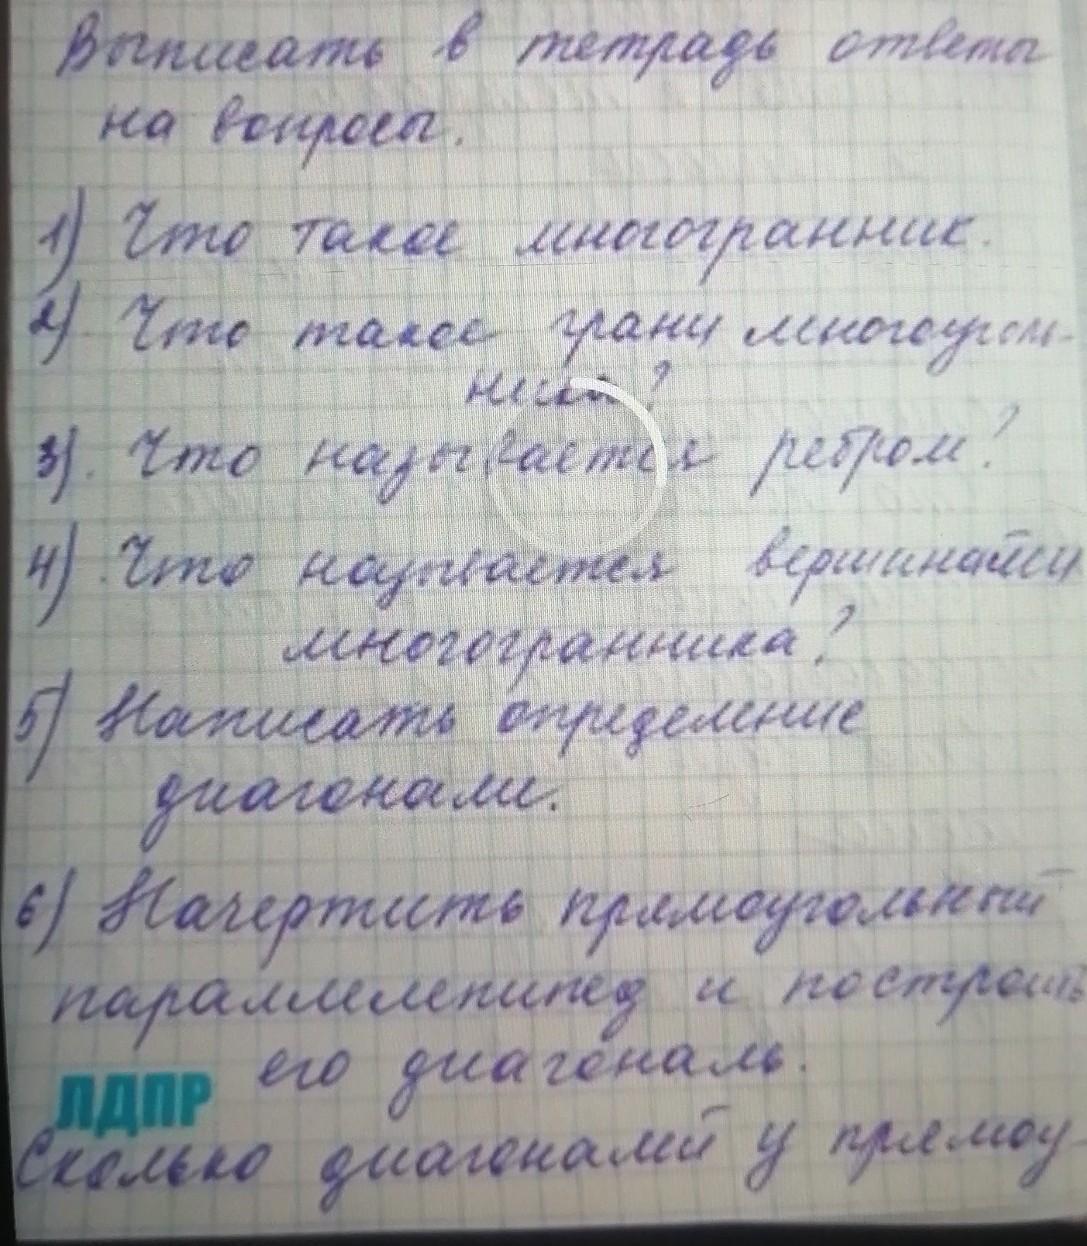 Выписать в тетрадь ответы
на вопросы.
1) Что такое многогранник.
2) Что такое грани многоуголь-
ника?
3). Что называется ребром?
4). Что называется вершинами
многогранника?
5) Написать определение
диагонали.
6) Начертить прямоугольный
параллелепипед и построить
его диагональ.
ЛДПР
Сколько диагоналей у прямоу